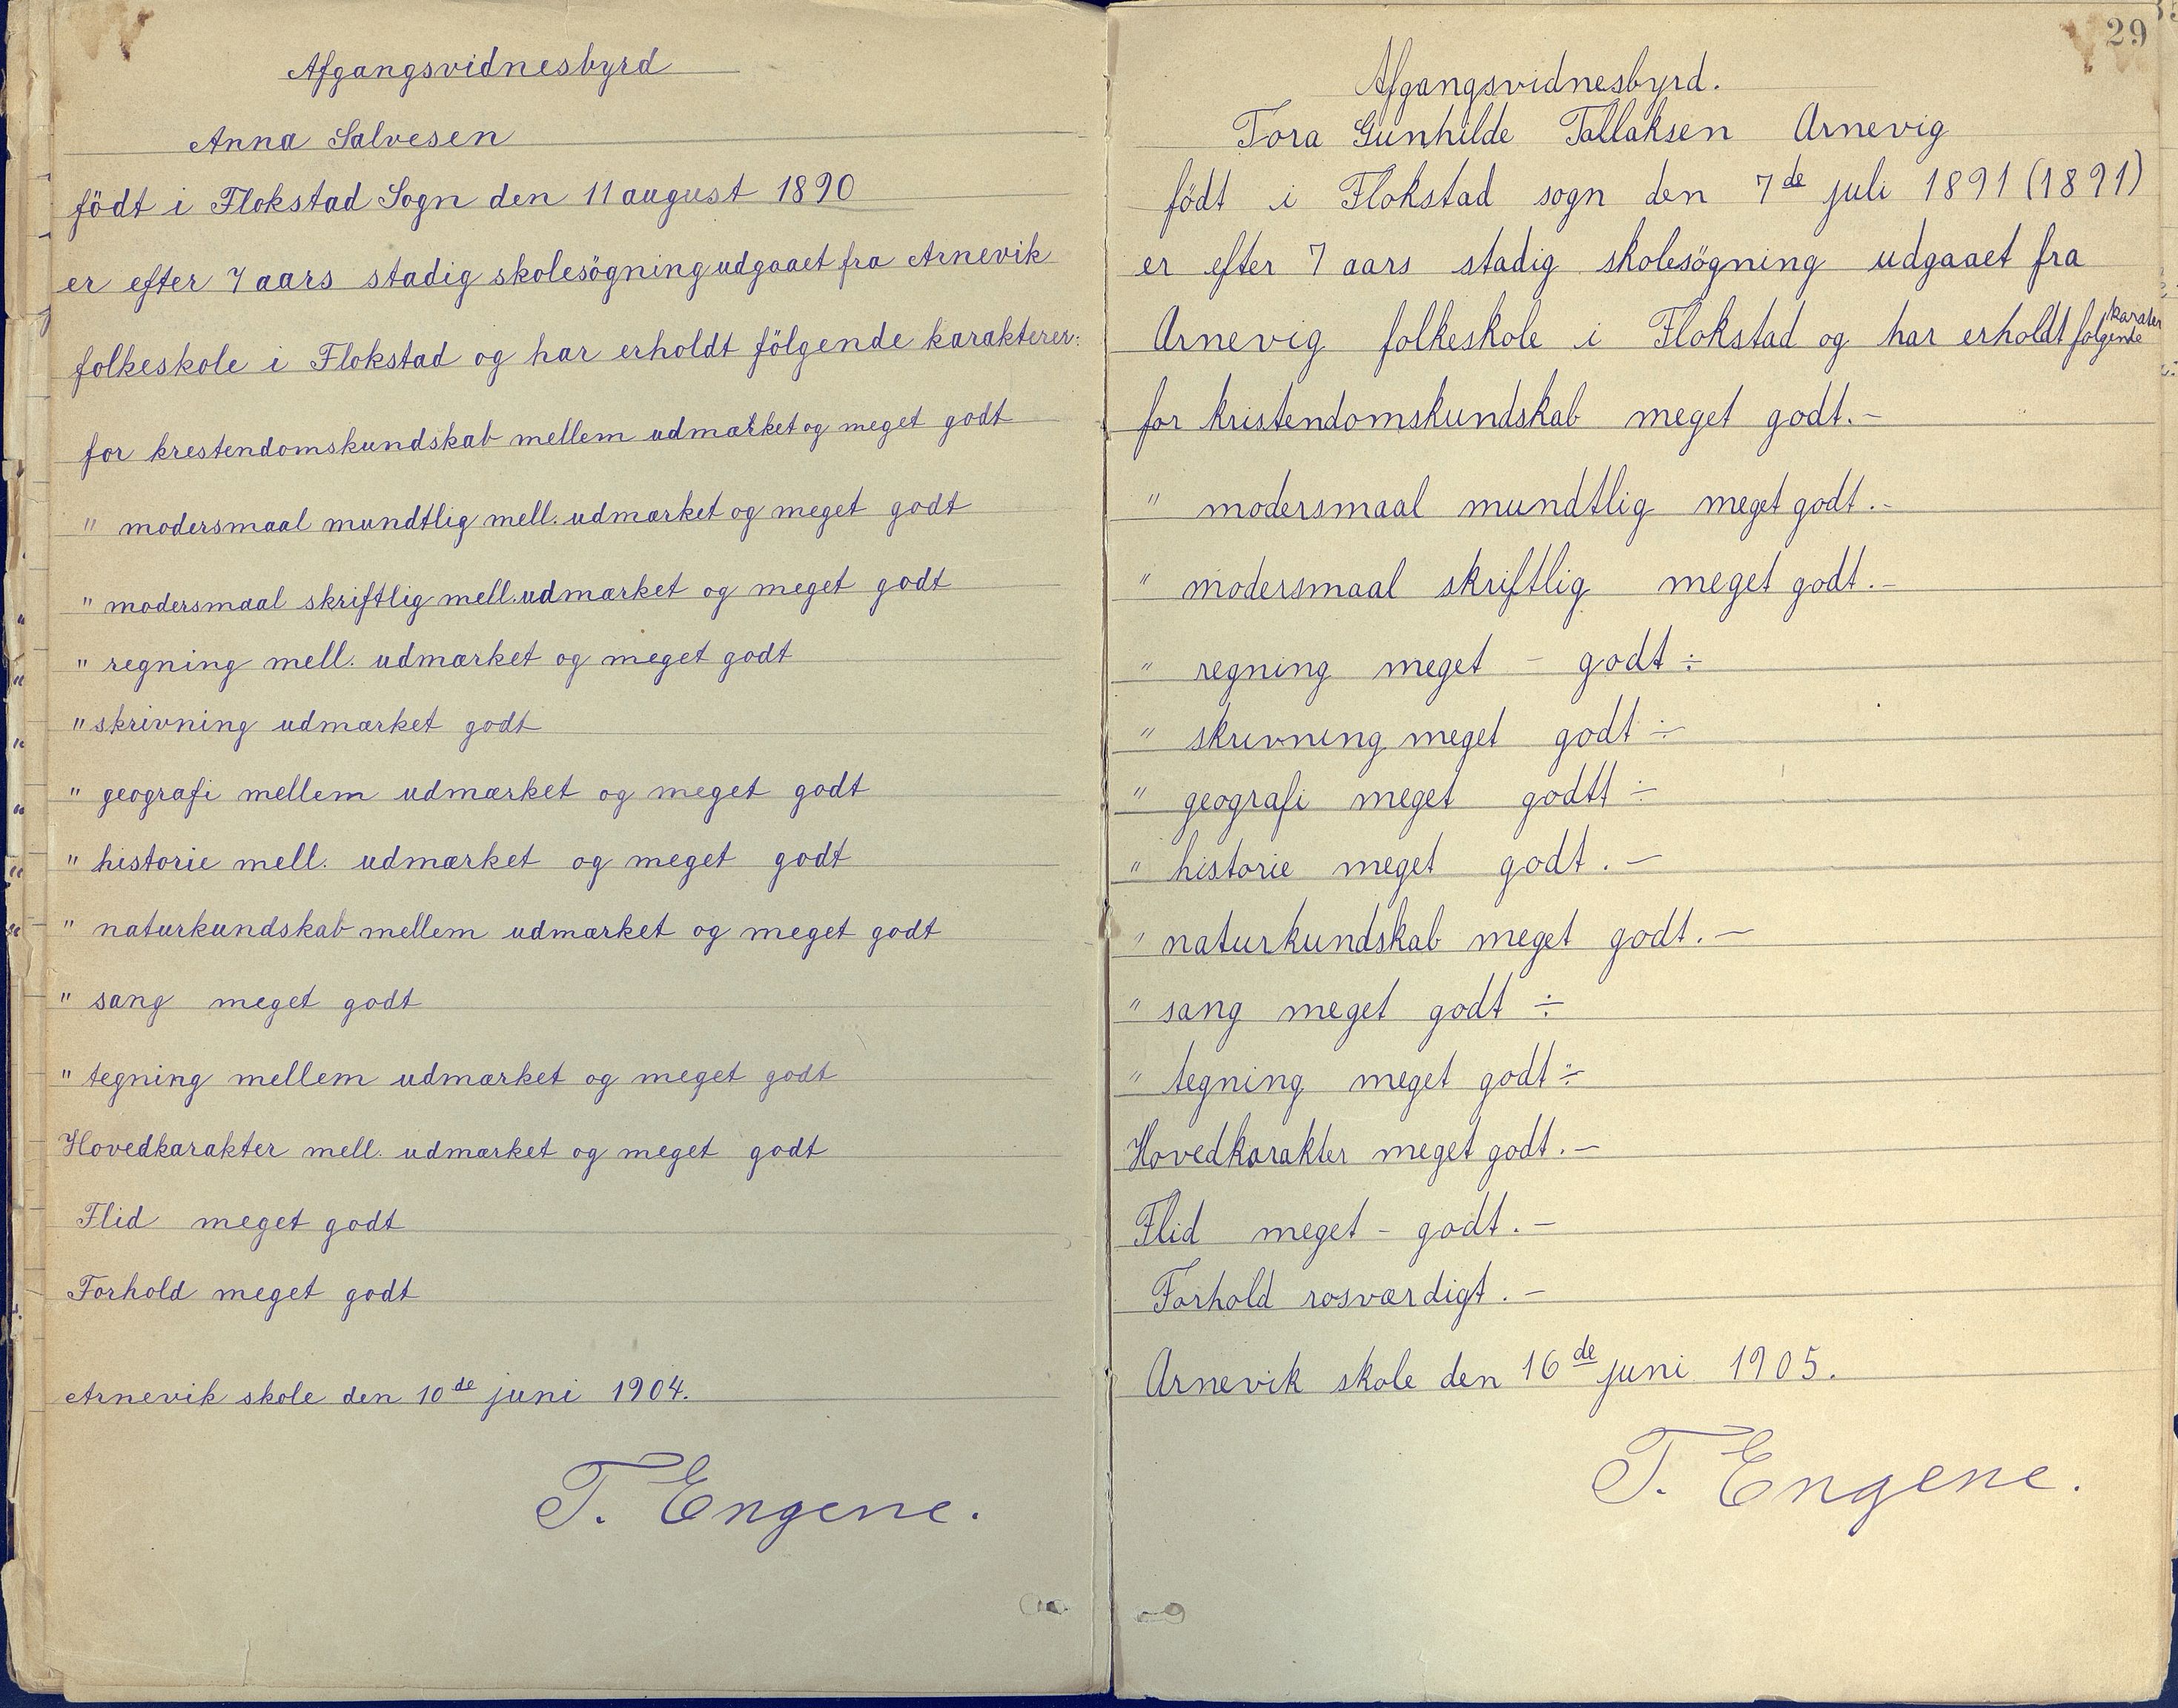 Afgangsvidnesbyrd
Anna Salvesen
födt i Flokstad Sogn den 11 august 1890
er efter 7 aars stadig skolesögning udgaaet fra Arnevik
folkeskole i Flokstad og har erholdt fölgende karakterer:
for krestendomskundskab mellem udmærket og meget godt
" modersmaal mundtlig mell. udmærket og meget godt
" modersmaal skriftlig mell. udmærket og meget godt
" regning mell. udmærket og meget godt
" skrivning udmærket godt
" geografi mellem udmærket og meget godt
" historie mell. udmærket og meget godt
" naturkundskab mellem udmærket og meget godt
" sang meget godt
" tegning mellem udmærket og meget godt
Hovedkarakter mell. udmærket og meget godt
Flid meget godt
Forhold meget godt
Arnevik skole den 10de juni 1904.
T. Engene.
29
Afgangsvidnesbyrd.
Tora Gunhilde Tallaksen Arnevig
födt i Flokstad sogn den 7de juli 1891 (1891)
er efter 7 aars stadig skolesögning udgaaet fra
Arnevig folkeskole i Flokstad og har erholdt følgende
for kristendomskundskab meget godt.-
" modersmaal mundtlig meget godt.-
" modersmaal skriftlig meget godt.-
" regning meget - godt ÷
" skrivning meget godt ÷
" geografi meget godtt ÷
" historie meget godt. -
" naturkundskab meget godt. -
" sang meget godt ÷
" tegning meget godt ÷
Hovedkarakter meget godt. -
Flid meget - godt. -
Forhold rosværdigt. -
Arnevik skole den 16de juni 1905.
T. Engene.